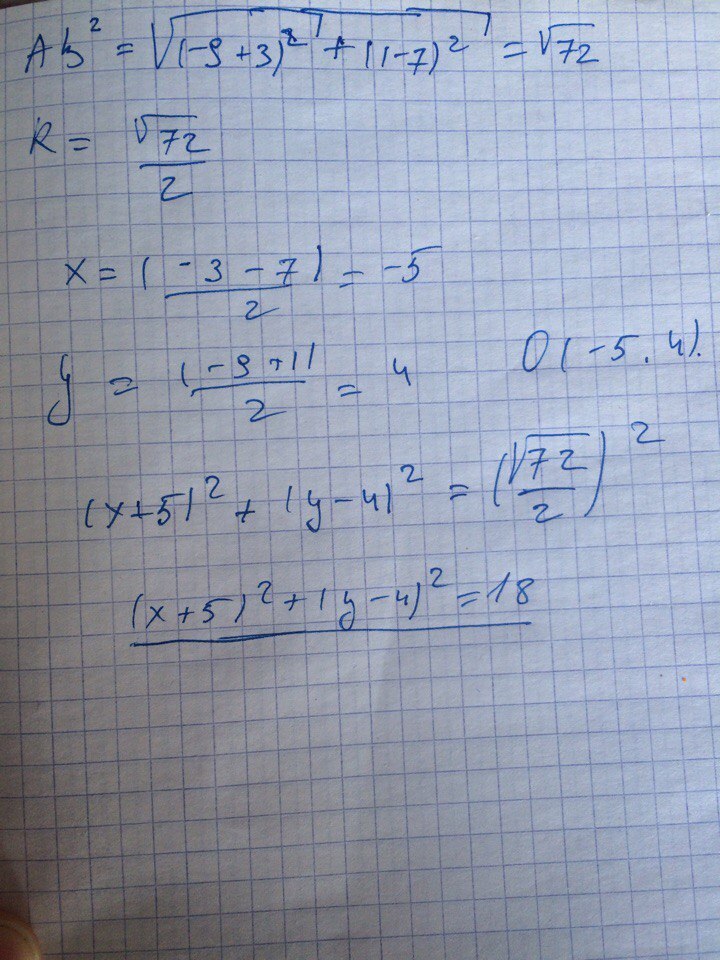 AB² = √((-9+3)² + (1-7)²) = √72
R = √72/2
x = (-3-7)/2 = -5
y = (-9+1)/2 = 4
O(-5. 4).
(x+5)² + (y-4)² = (√72/2)²
(x+5)² + (y-4)² = 18